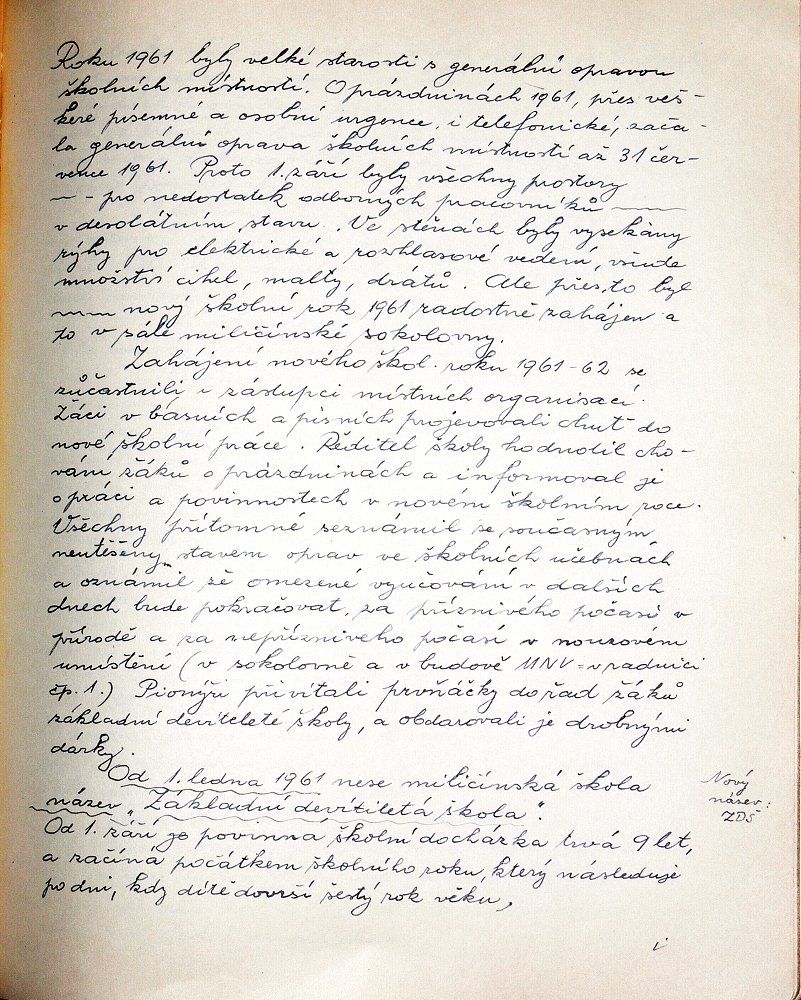 Roku 1961 byly velké starosti s generální opravou
školních místností. O prázdninách 1961, přes veš-
keré písemné a osobní urgence, i telefonické, zača-
la generální oprava školních místností až 31 čer-
vence 1961. Proto 1. září byly všechny prostory
— - pro nedostatek odborných pracovníků ——
v desolátním stavu. Ve stěnách byly vysekány
rýhy pro elektrické a rozhlasové vedení, všude
množství cihel, malty, drátů. Ale přes to byl
—— nový školní rok 1961 radostně zahájen a
to v sále miličínské sokolovny.
Zahájení nového škol. roku 1961-62 se
zúčastnili i zástupci místních organisací.
Žáci v básních a písních projevovali chuť do
nové školní práce. Ředitel školy hodnotil cho-
vání žáků o prázdninách a informoval je
o práci a povinnostech v novém školním roce.
Všechny přítomné seznámil se současným,
neutěšeným stavem oprav ve školních učebnách
a oznámil že omezené vyučování v dalších
dnech bude pokračovat, za příznivého počasí v
přírodě a za nepříznivého počasí v nouzovém
umístění (v sokolovně a v budově MNV = v radnici
čp. 1.) Pionýři přivítali prvňáčky do řad žáků
základní devítileté školy, a obdarovali je drobnými
dárky.
Od 1. ledna 1961 nese miličínská škola
název „Základní devítiletá škola".
Nový
název:
ZDŠ
Od 1. září je povinná školní docházka trvá 9 let,
a začíná počátkem školního roku, který následuje
po dni, kdy dítě dovrší šestý rok věku,